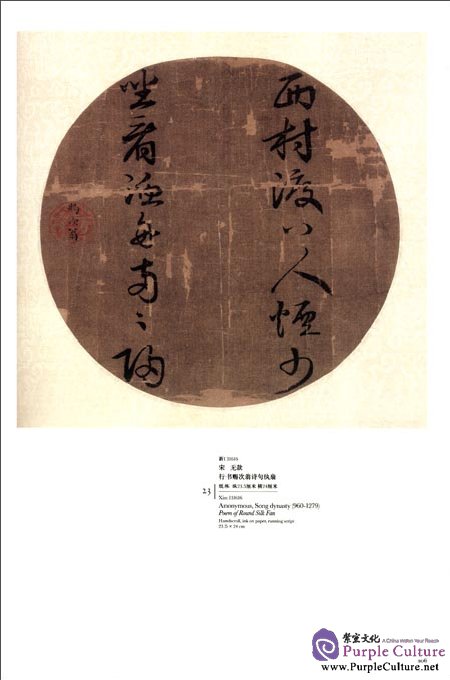 西村渡口人煙少
坐看漁舟兩〻歸
賜次翁
23
宋 无款
行书赐次翁诗句纨扇
纵23.5厘米 横24厘米
Anonymous, Song dynasty (960-1279)
Poem of Round Silk Fan
Handscroll, ink on paper, running script
23.5 × 24 cm
紫室文化 A China Within Your Reach
Purple Culture
www.PurpleCulture.net